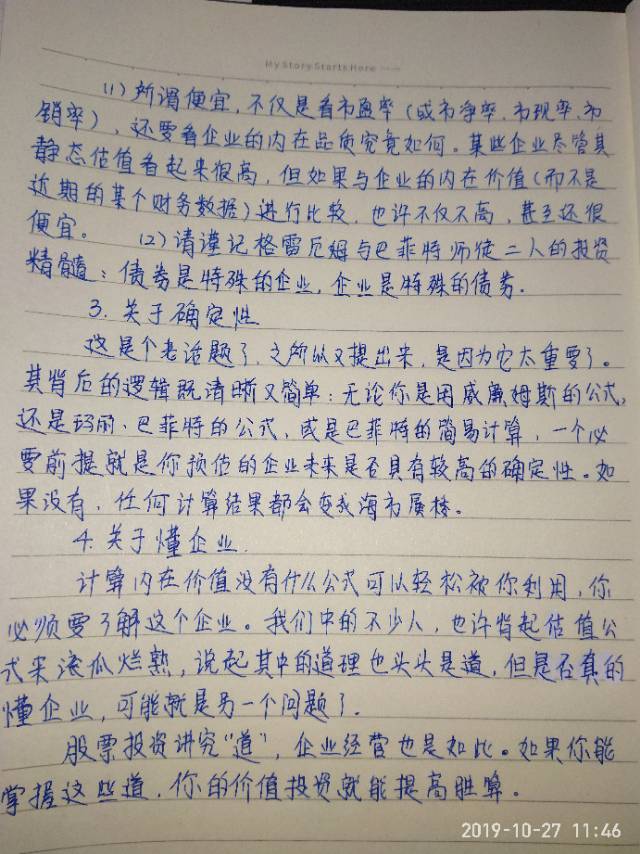 My Story Starts Here
(1) 所谓便宜,不仅是看市盈率(或市净率、市现率、市
销率),还要看企业的内在品质究竟如何。某些企业尽管其
静态估值看起来很高,但如果与企业的内在价值(而不是
近期的某个财务数据)进行比较,也许不仅不高,甚至还很
便宜。 (2) 请谨记格雷厄姆与巴菲特师徒二人的投资
精髓:债券是特殊的企业,企业是特殊的债券.
3. 关于确定性
这是个老话题了,之所以又提出来,是因为它太重要了。
其背后的逻辑既清晰又简单:无论你是用威廉姆斯的公式,
还是玛丽·巴菲特的公式,或是巴菲特的简易计算,一个必
要前提就是你预估的企业未来是否具有较高的确定性。如
果没有,任何计算结果都会变成海市蜃楼。
4. 关于懂企业.
计算内在价值没有什么公式可以轻松被你利用,你
必须要了解这个企业。我们中的不少人,也许背起估值公
式来滚瓜烂熟,说起其中的道理也头头是道,但是否真的
懂企业,可能就是另一个问题了.
股票投资讲究"道",企业经营也是如此。如果你能
掌握这些道,你的价值投资就能提高胜算。
2019-10-27 11:46